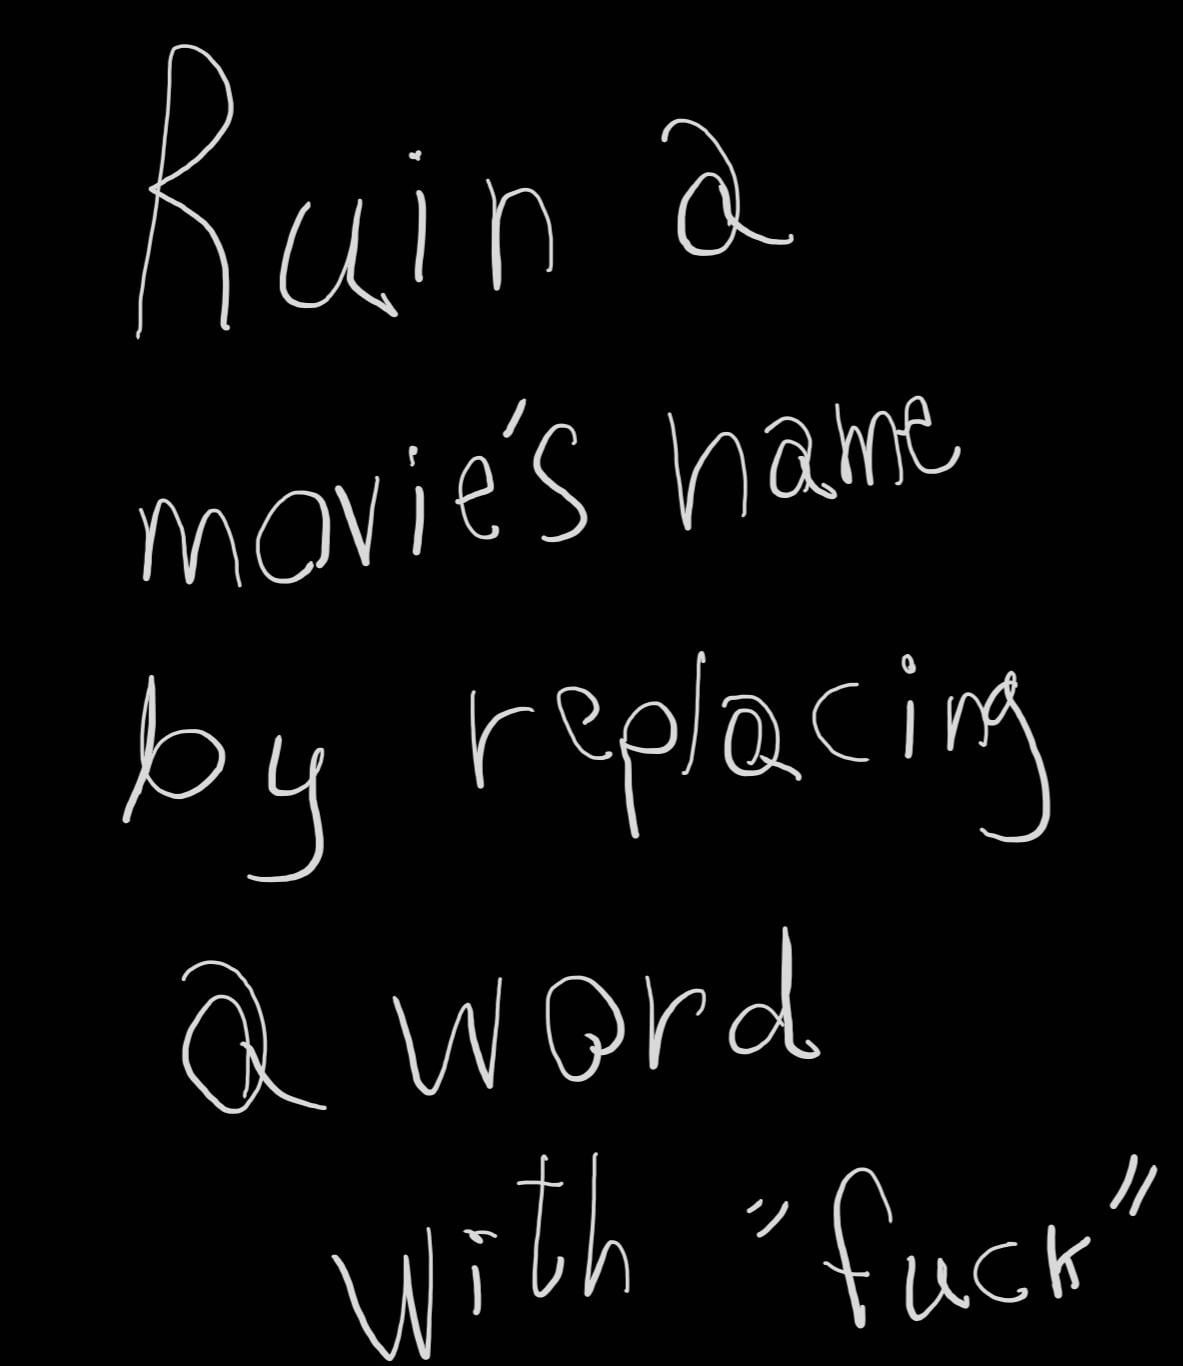 Ruin a
movie's name
by replacing
a word
with "fuck"